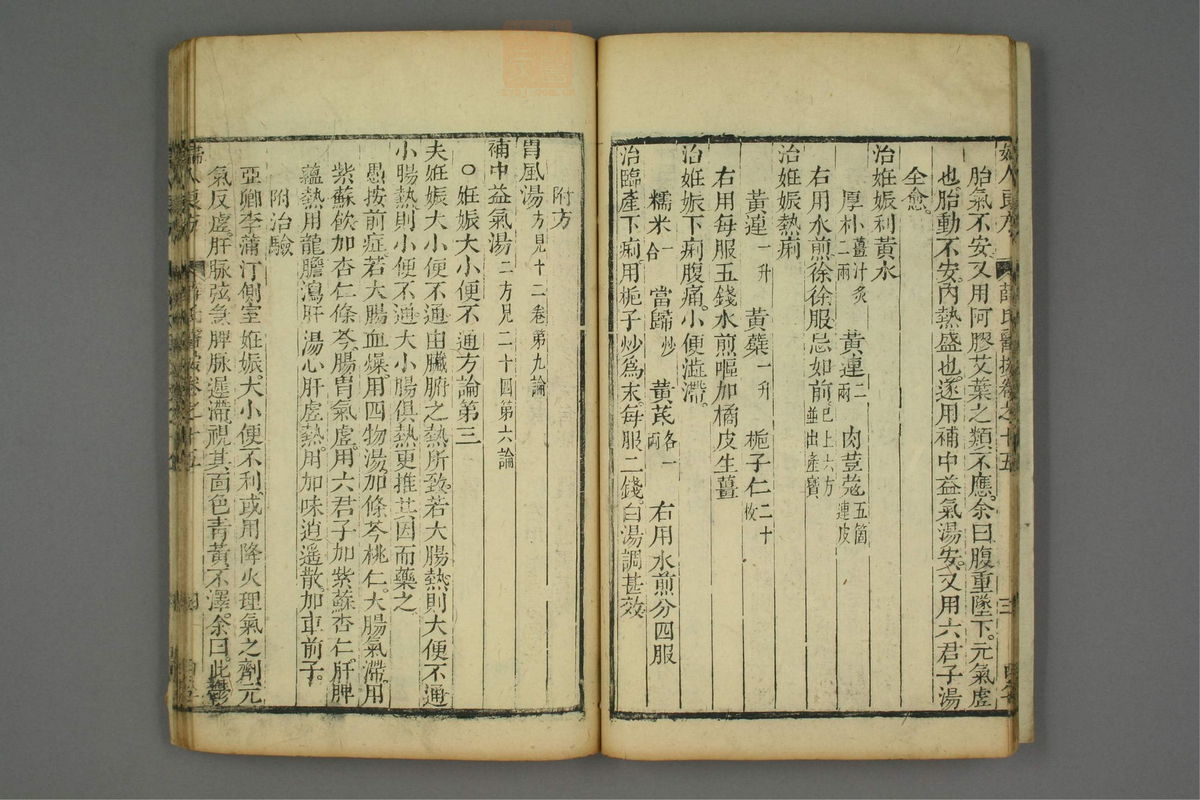 胎氣不安又用阿膠艾葉之類不應余曰腹重墜下元氣虛
也胎動不安內熱盛也遂用補中益氣湯安又用六君子湯
全愈
治妊娠利黃水
厚朴薑汁炙二兩 黃連二兩 肉荳蔻五箇連皮
右用水煎徐徐服忌如前已上六方並出產寶
治妊娠熱痢
黃連一升 黃蘗一升 梔子仁二十枚
右用每服五錢水煎嘔加橘皮生薑
治妊娠下痢腹痛小便澁滯
糯米一合 當歸炒 黃芪各一兩 右用水煎分四服
治臨產下痢用梔子炒爲末每服二錢白湯調甚效
附方
胃風湯方見十二卷第九論
補中益氣湯二方見二十四第六論
○妊娠大小便不通方論第三
夫妊娠大小便不通由臟腑之熱所致若大腸熱則大便不通
小腸熱則小便不通大小腸俱熱更推其因而藥之
愚按前症若大腸血燥用四物湯加條芩桃仁大腸氣滯用
紫蘇飲加杏仁條芩腸胃氣虛用六君子加紫蘇杏仁肝脾
蘊熱用龍膽瀉肝湯心肝虛熱用加味逍遙散加車前子
附治驗
亞卿李蒲汀側室妊娠大小便不利或用降火理氣之劑元
氣反虛肝脈弦急脾脈遲滯視其面色青黃不澤余曰此鬱